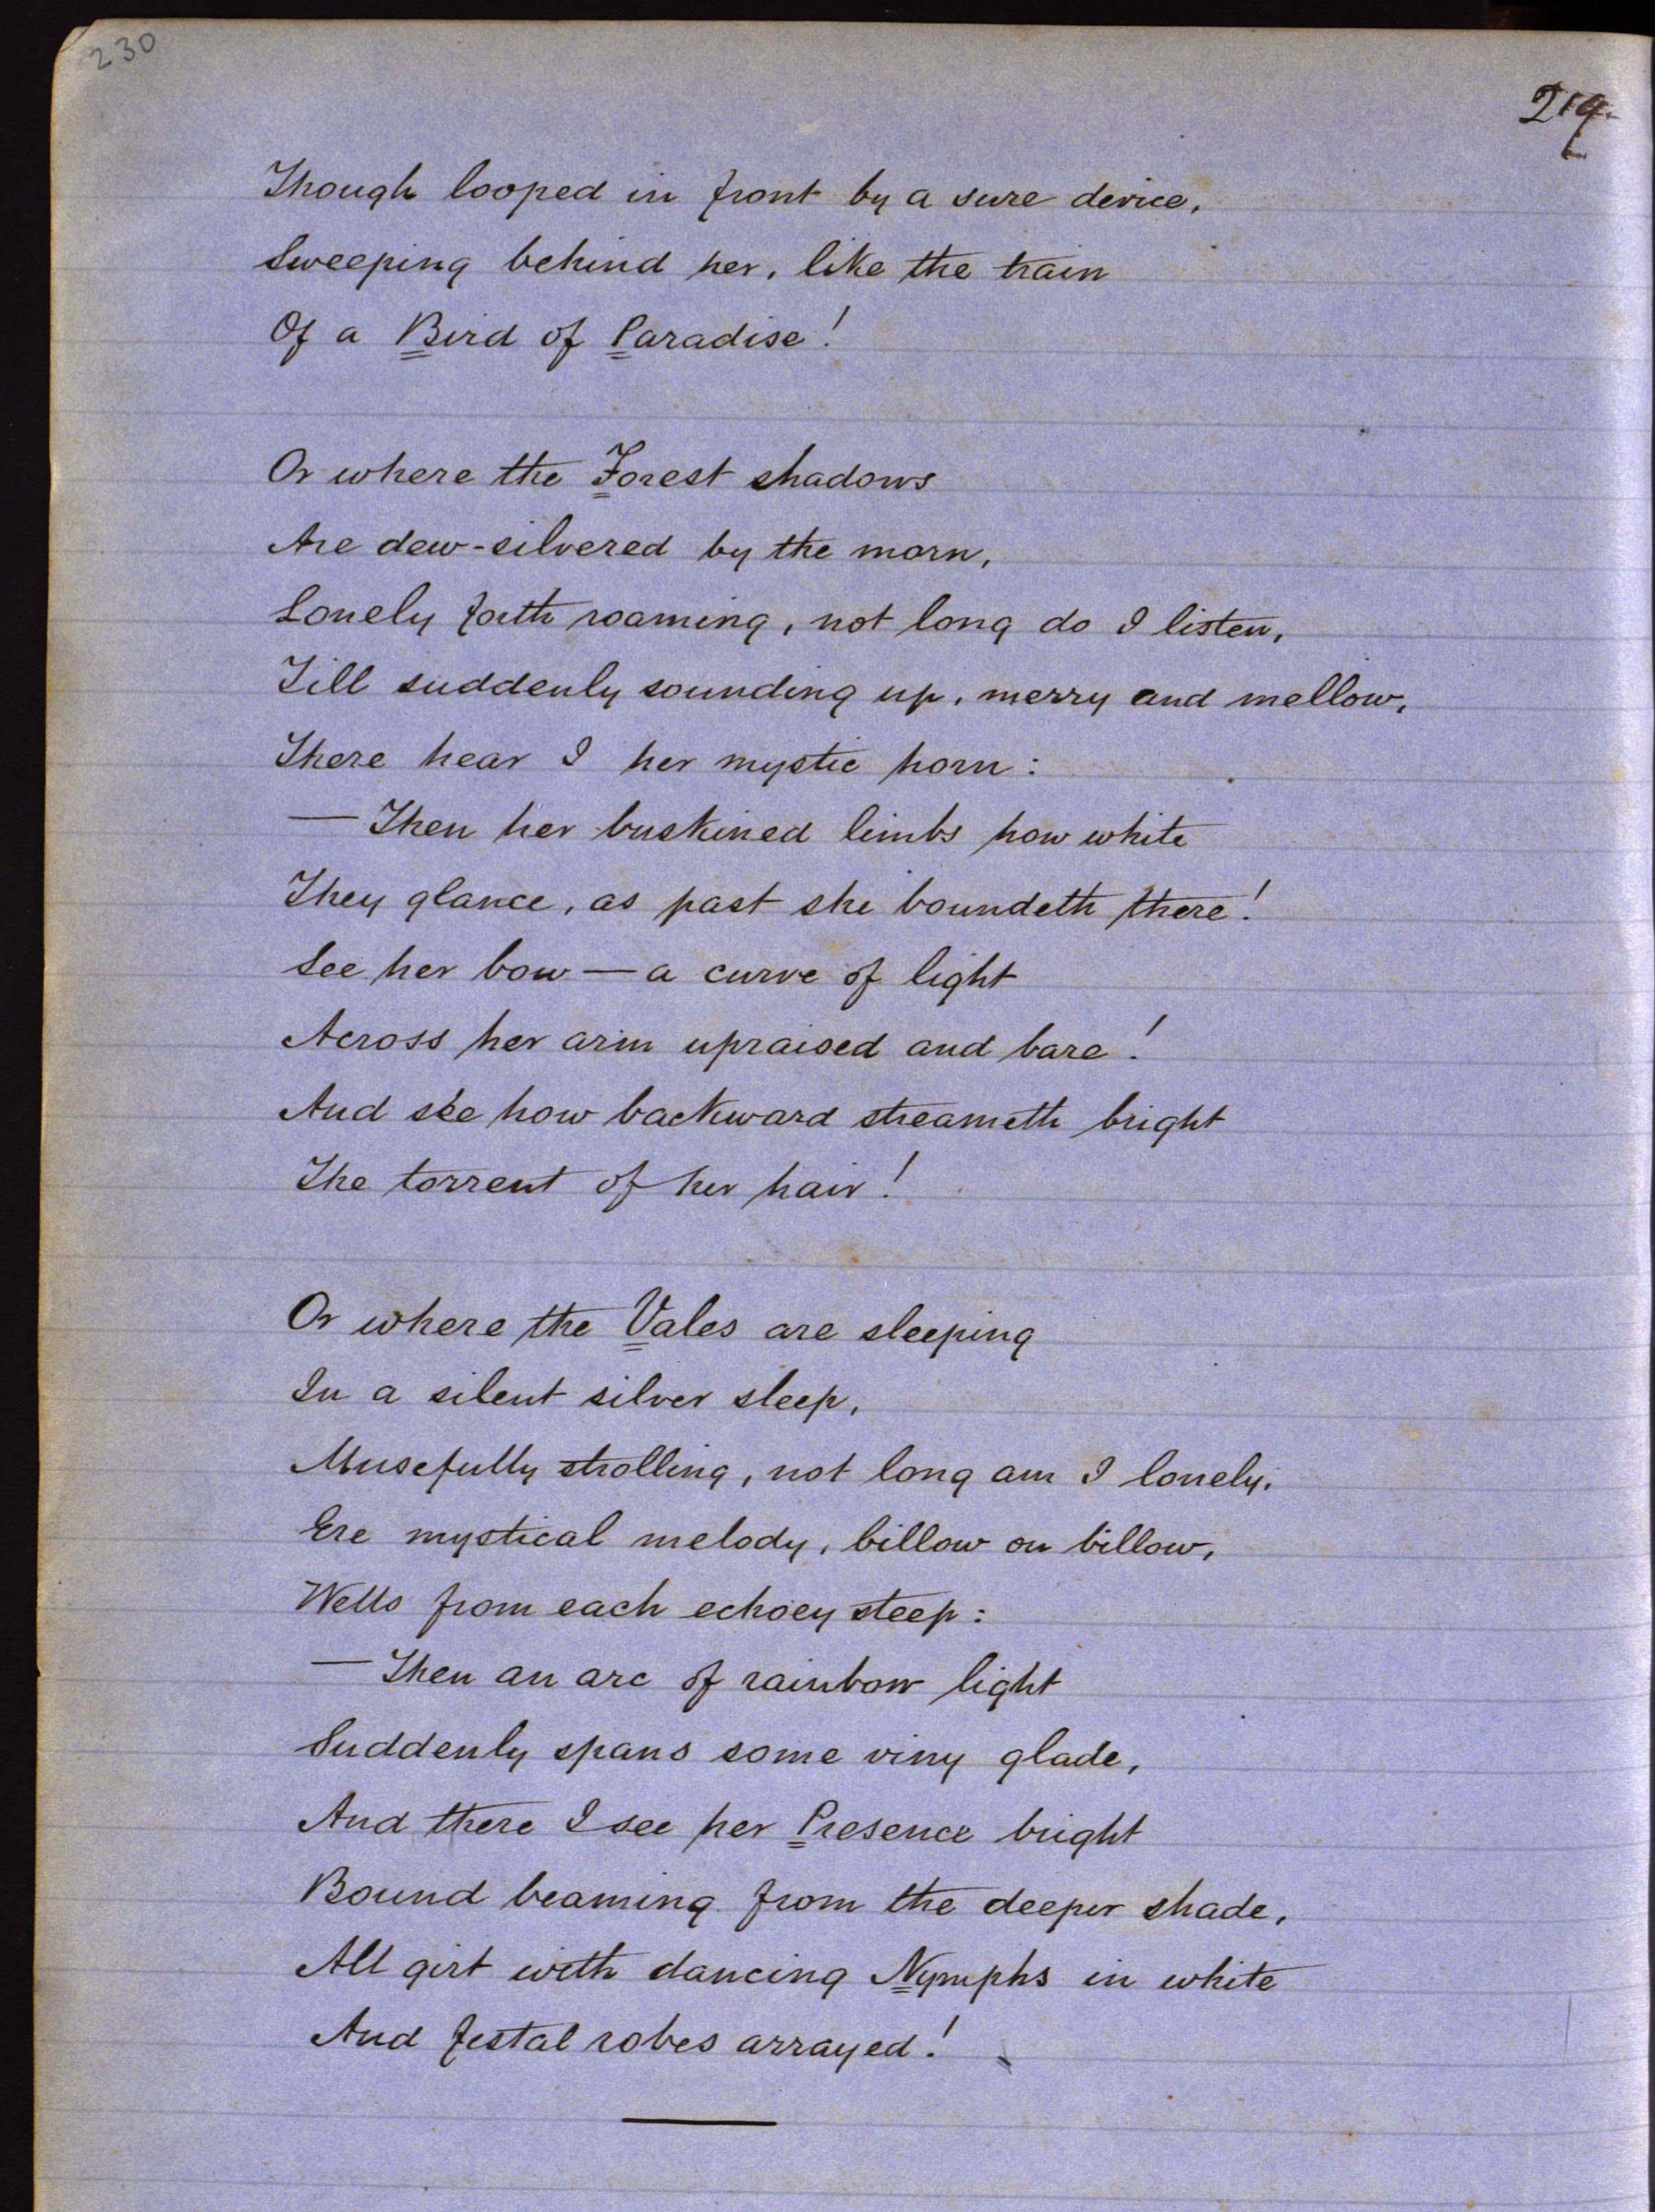 230
219.
Though looped in front by a sure device,
Sweeping behind her, like the train
Of a Bird of Paradise!
Or where the Forest shadows
Are dew-silvered by the morn,
Lonely forth roaming, not long do I listen,
Till suddenly sounding up, merry and mellow,
There hear I her mystic horn:
— Then her buskined limbs how white
They glance, as past she boundeth there!
See her bow — a curve of light
Across her arm upraised and bare!
And see how backward streameth bright
The torrent of her hair!
Or where the Vales are sleeping
In a silent silver sleep,
Musefully strolling, not long am I lonely,
Ere mystical melody, billow on billow,
Wells from each echoey steep:
— Then an arc of rainbow light
Suddenly spans some viny glade,
And there I see her Presence bright
Bound beaming from the deeper shade,
All girt with dancing Nymphs in white
And festal robes arrayed!